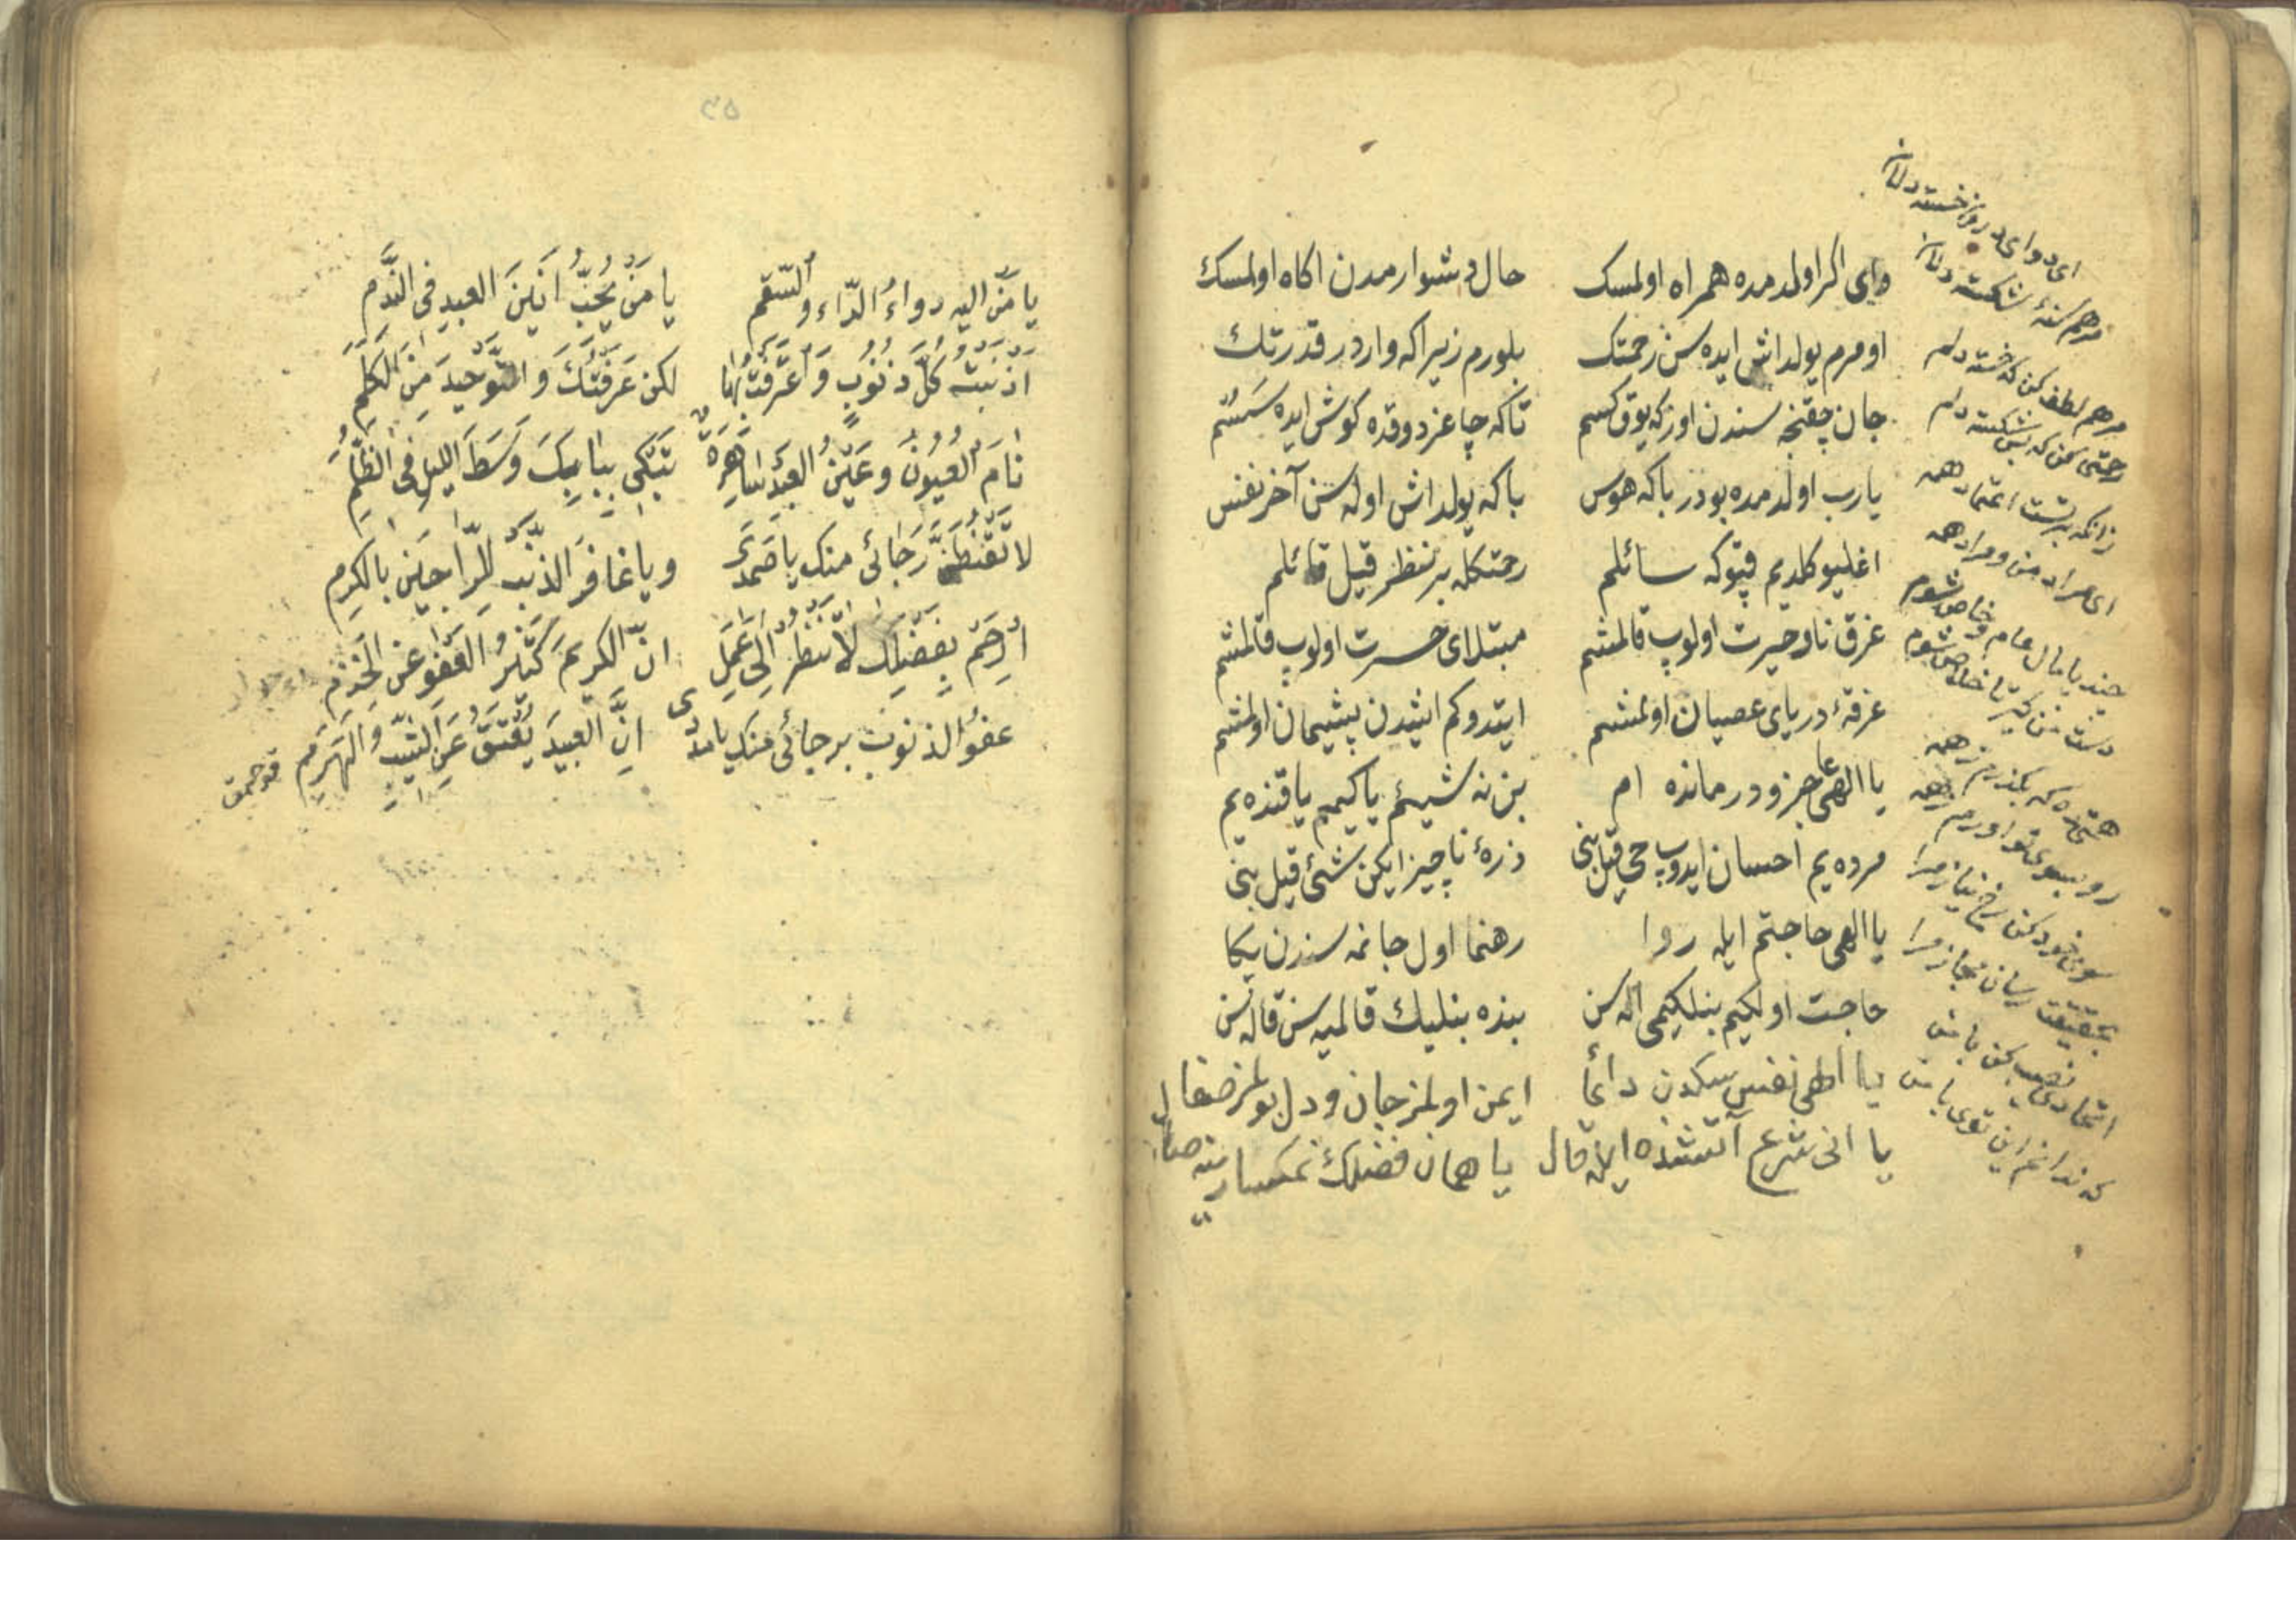 وای اکر اولدمده همراه اولمسک حال دشوارمدن اکاه اولمسك
اومرم یولداش ایده سن رحمتك بلورم زیرا که واردر قدرتك
جان چقنجه سندن اوزکه یوق کسم تاکه چاغردوقده کوش ایده سسم
یارب اولدمده بودر باکه هوس باکه یولداش اوله سن آخر نفس
اغلیو کلدیم قپوکه سائلم رحمتکله بر نظر قیل قائلم
غرق نار حیرت اولوب قالمشم مبتلای حسرت اولوب قالمشم
غرقهٔ دریای عصیان اولمشم ایتدوکم ایشدن پشیمان اولمشم
یا الهی عاجز و درمانده ام بن نه شیئم یا کیمم یا قنده یم
مرده یم احسان ایدوب حی قیل بنی ذرهٔ ناچیز ایکن شئ قیل بنی
یا الهی حاجتم ایله روا رهنما اول جانمه سندن یکا
حاجت اولکیم بنلکیمی اله سن بنده بنلیك قالمیه سن قاله سن
یا الهی نفس سکدن دائما ایمن اولمز جان و دل بولمز صفا
یا انی شرع آتشنده ایله قال یا همان فضلك نمکسارینه صال
ای دوای درون خسته دلان
مرهم سینهٔ شکسته دلان
مرهم لطف کن که خسته دلم
رحمتی کن که بس شکسته دلم
زانکه بر تست اعتماد همه
ای مراد من و مراد همه
چند پامال عام و خاص شوم
دست من کیر تا خلاص شوم
همتی ده که بکذرم ز همه
رو بسوی تو اورم ز همه
سوی خود کن رخ نیاز مرا
بحقیقت رسان مجاز مرا
اتحادی نصیب کن با من
که ندانم این توی یا من
۳۵
یا مَنْ الیه دواءُ الدّاء والسّقم یا مَنْ یُحِبُّ اَنینَ العبیدِ فی النَّدَم
اذنبتُ کلَّ ذنوبٍ وَاعترفتُ بها لکن عَرَفْتُكَ وَالتّوحیدَ مِنَ الکَلِمِ
نامَ العُیونُ وعَیْنُ العبدِ ساهِرَةٌ تَبْکی بِبابِكَ وَسَطَ اللیلِ فی الظُّلَمِ
لا تقنطنَّ رَجائی منك یا صمدی ویا غافرَ الذّنب للرّاجینَ بالکرمِ
ارحَمْ بفضلِكَ لا تنظرْ الی عَمَلِی انّ الکریمَ کثیرُ العفوِ عن الخدمِ
عفوُ الذنوب برجائی منك یا مددی انّ العبیدَ یُعْتَقُ عَنِ الشَّیبِ والهَرَمِ